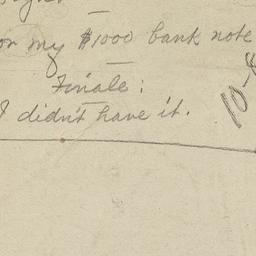 or my $1000 bank note
Finale:
I didn't have it.
10-